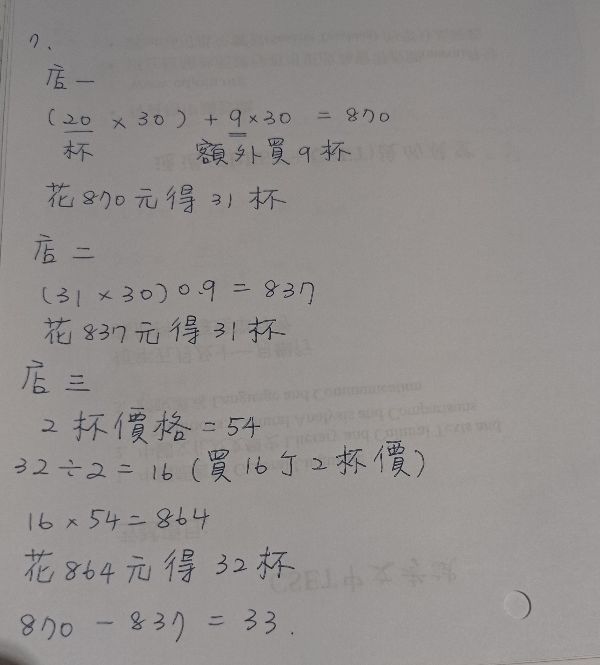 7.
店一
(20 × 30) + 9×30 = 870
杯 額外買9杯
花870元得31杯
店二
(31 × 30)0.9 = 837
花837元得31杯
店三
2杯價格=54
32÷2=16(買16个2杯價)
16×54=864
花864元得32杯
870 - 837 = 33.